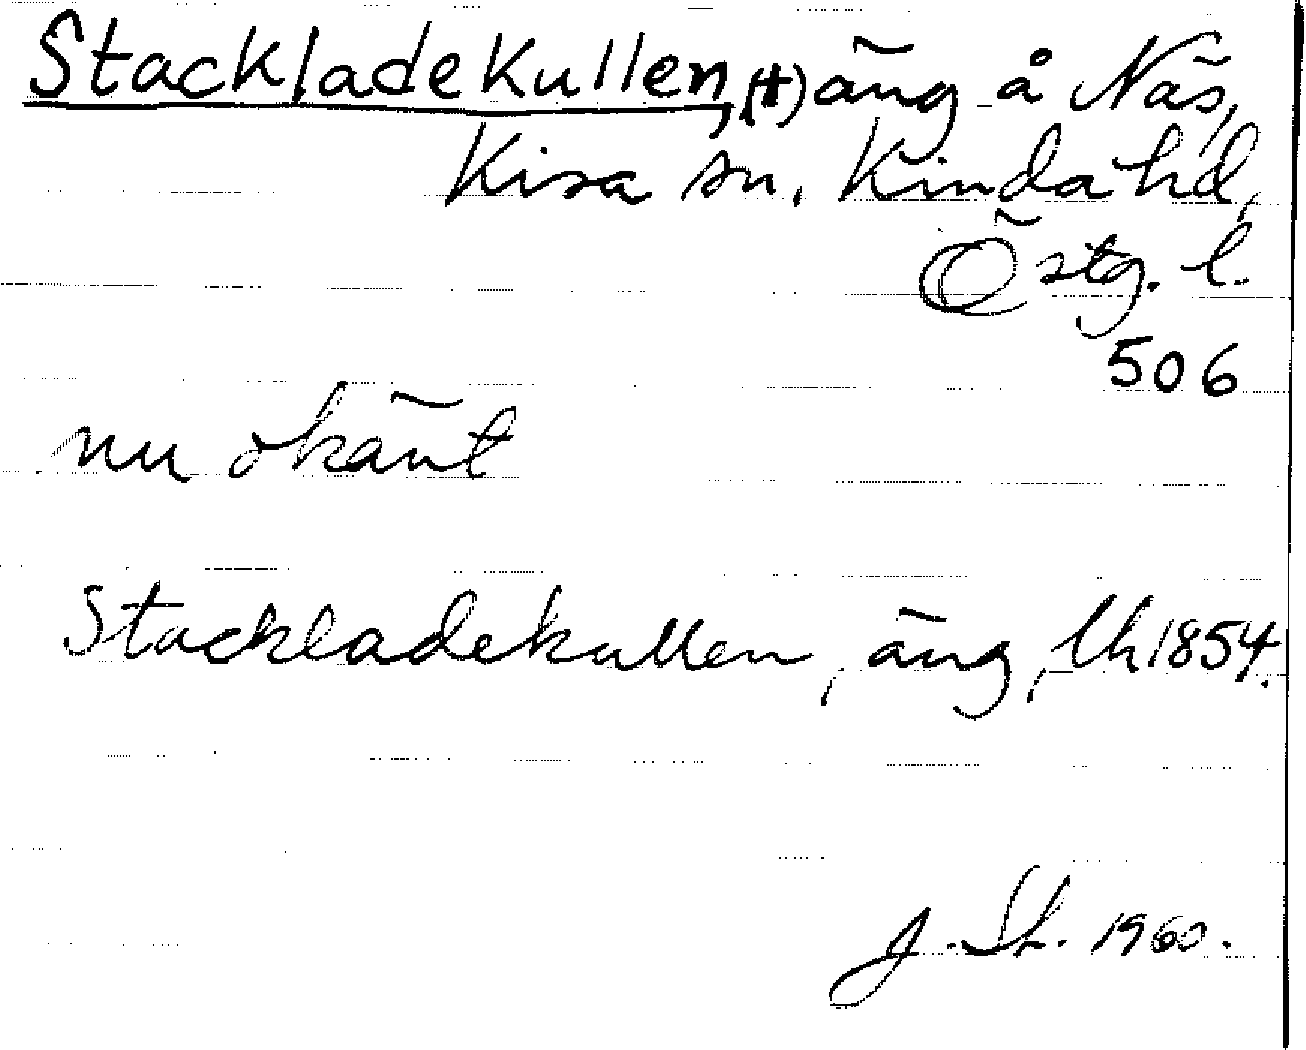 Stackladekullen, (†) äng å Näs,
Kisa sn. Kinda hd,
Östg. l.
506
nu okänt
Stackladekullen, äng, Lh 1854.
J. Sh. 1960.